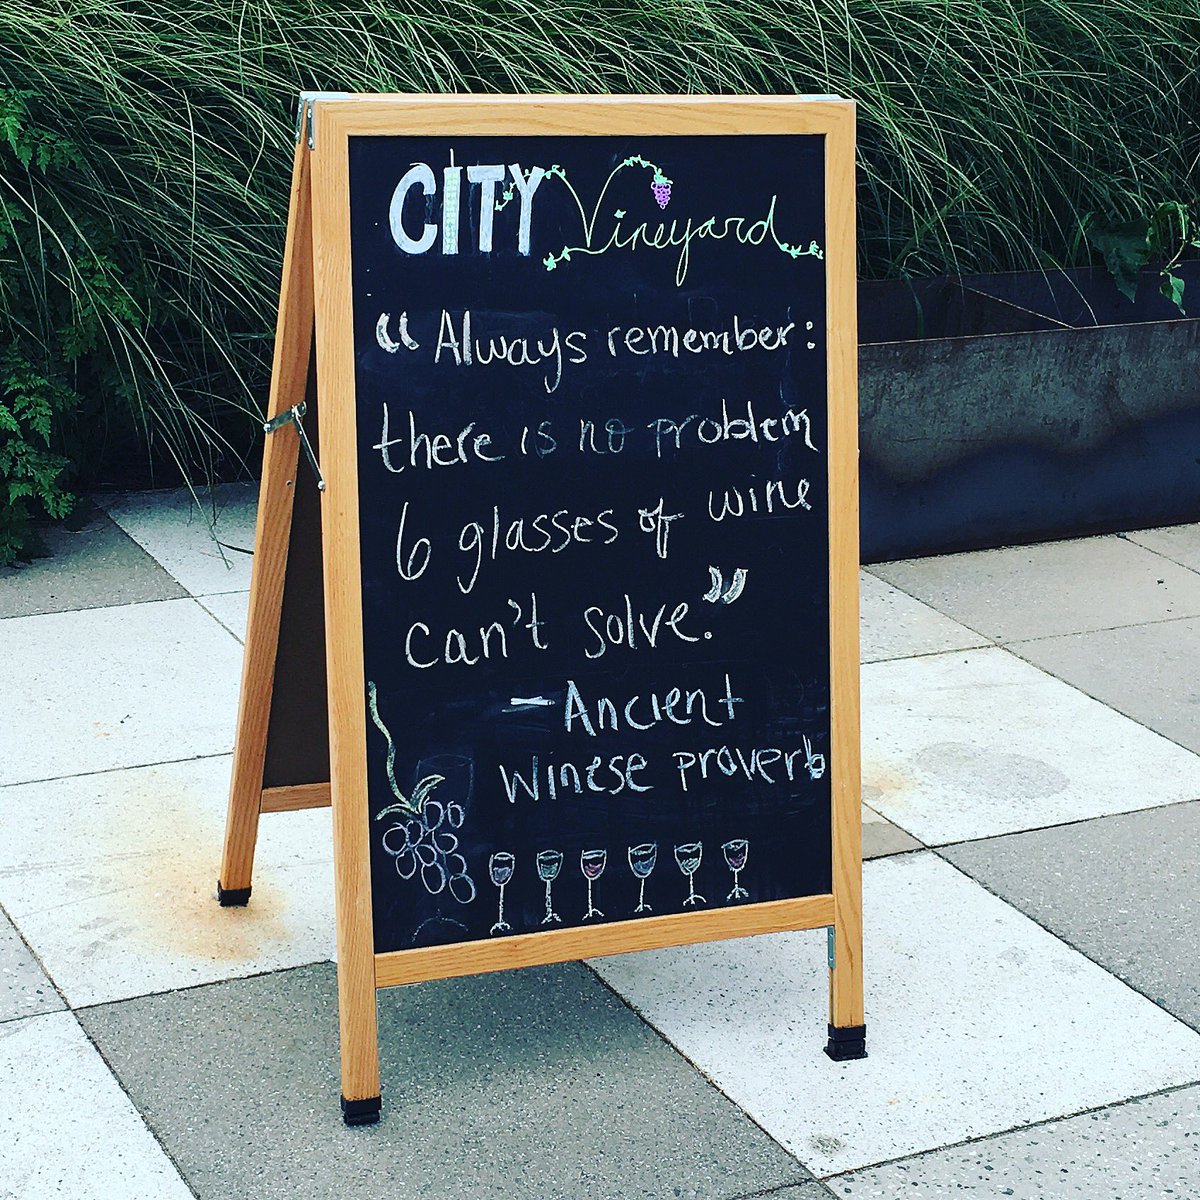 CITY Vineyard
“Always remember:
there is no problem
6 glasses of wine
can't solve.”
- Ancient
Winese proverb